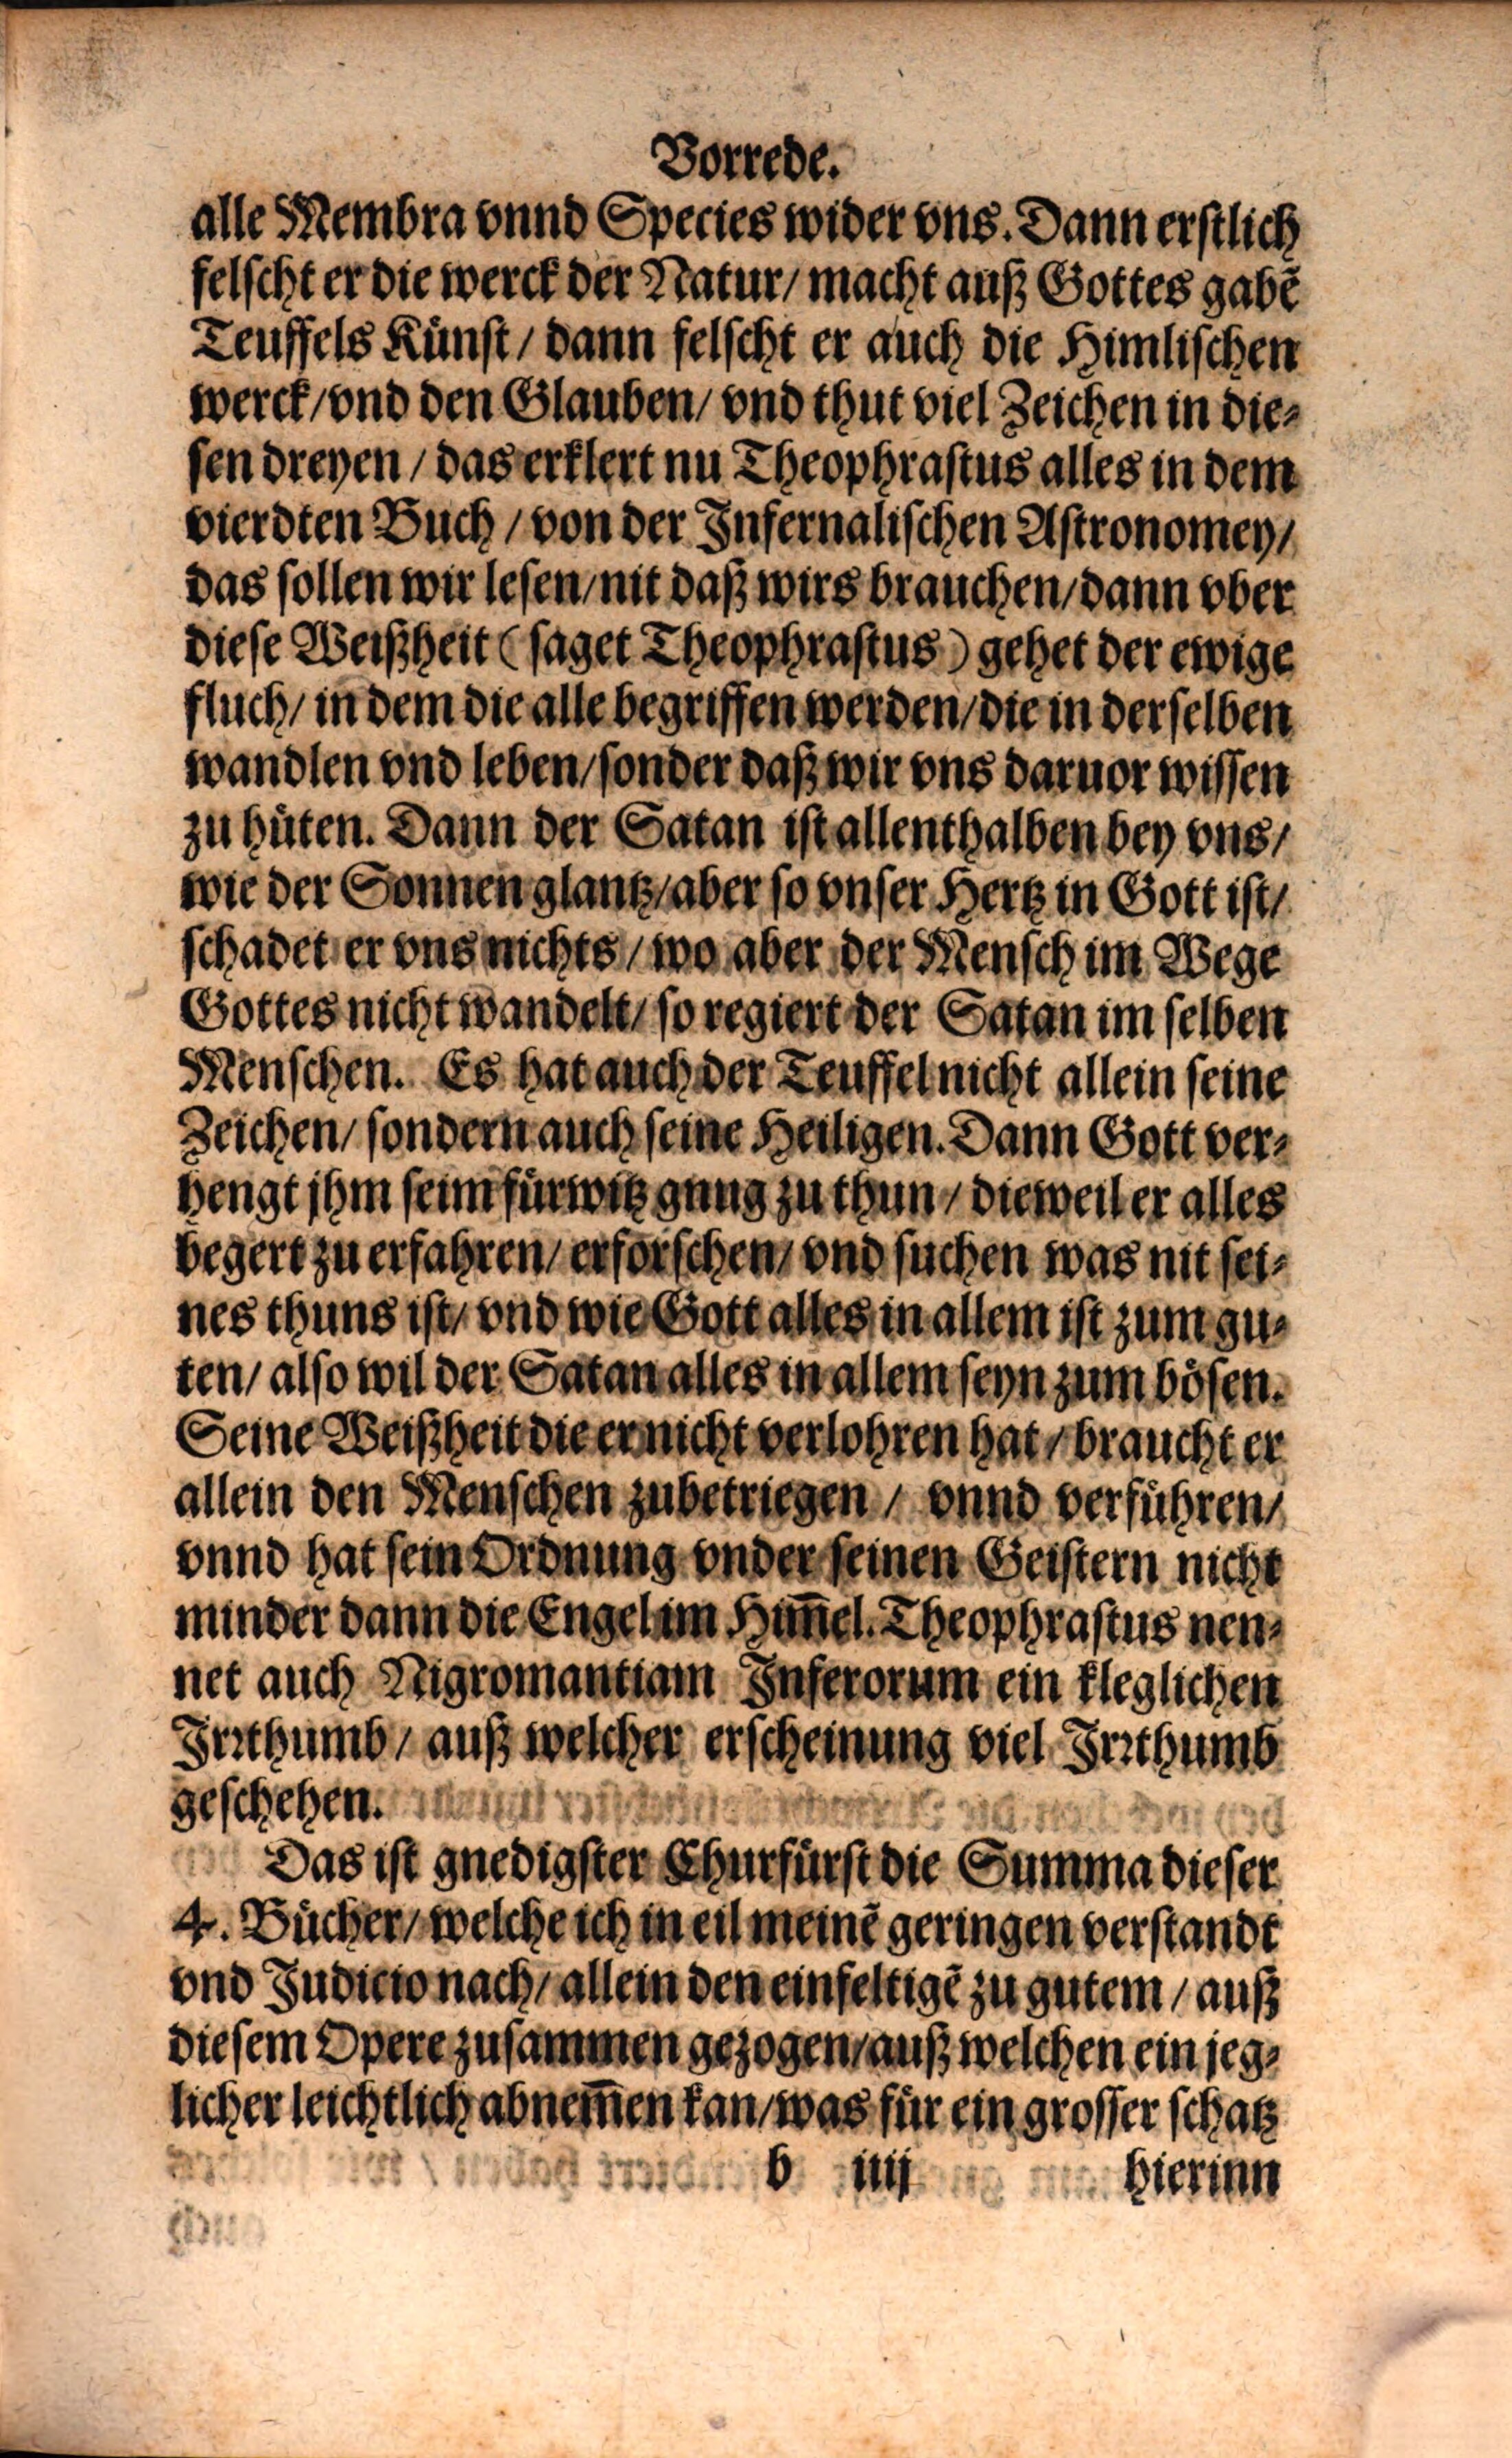 Vorrede.
alle Membra vnnd Species wider vns. Dann erstlich
felscht er die werck der Natur/ macht auß Gottes gabẽ
Teuffels Künst/ dann felscht er auch die Himlischen
werck/ vnd den Glauben/ vnd thut viel Zeichen in die-
sen dreyen/ das erklert nu Theophrastus alles in dem
vierdten Buch/ von der Infernalischen Astronomey/
das sollen wir lesen/ nit daß wirs brauchen/ dann vber
diese Weißheit (saget Theophrastus) gehet der ewige
fluch/ in dem die alle begriffen werden/ die in derselben
wandlen vnd leben/ sonder daß wir vns daruor wissen
zu hüten. Dann der Satan ist allenthalben bey vns/
wie der Sonnen glantz/ aber so vnser Hertz in Gott ist/
schadet er vns nichts/ wo aber der Mensch im Wege
Gottes nicht wandelt/ so regiert der Satan im selben
Menschen. Es hat auch der Teuffel nicht allein seine
Zeichen/ sondern auch seine Heiligen. Dann Gott ver-
hengt jhm seim fürwitz gnug zu thun/ dieweil er alles
begert zu erfahren/ erforschen/ vnd suchen was nit sei-
nes thuns ist/ vnd wie Gott alles in allem ist zum gu-
ten/ also wil der Satan alles in allem seyn zum bösen.
Seine Weißheit die er nicht verlohren hat/ braucht er
allein den Menschen zubetriegen/ vnnd verführen/
vnnd hat sein Ordnung vnder seinen Geistern nicht
minder dann die Engel im Him̃el. Theophrastus nen-
net auch Nigromantiam Inferorum ein kleglichen
Irrthumb/ auß welcher erscheinung viel Irrthumb
geschehen.
Das ist gnedigster Churfürst die Summa dieser
4. Bücher/ welche ich in eil meinẽ geringen verstandt
vnd Judicio nach/ allein den einfeltigẽ zu gutem/ auß
diesem Opere zusammen gezogen/ auß welchen ein jeg-
licher leichtlich abnem̃en kan/ was für ein grosser schatz
b iiij hierinn